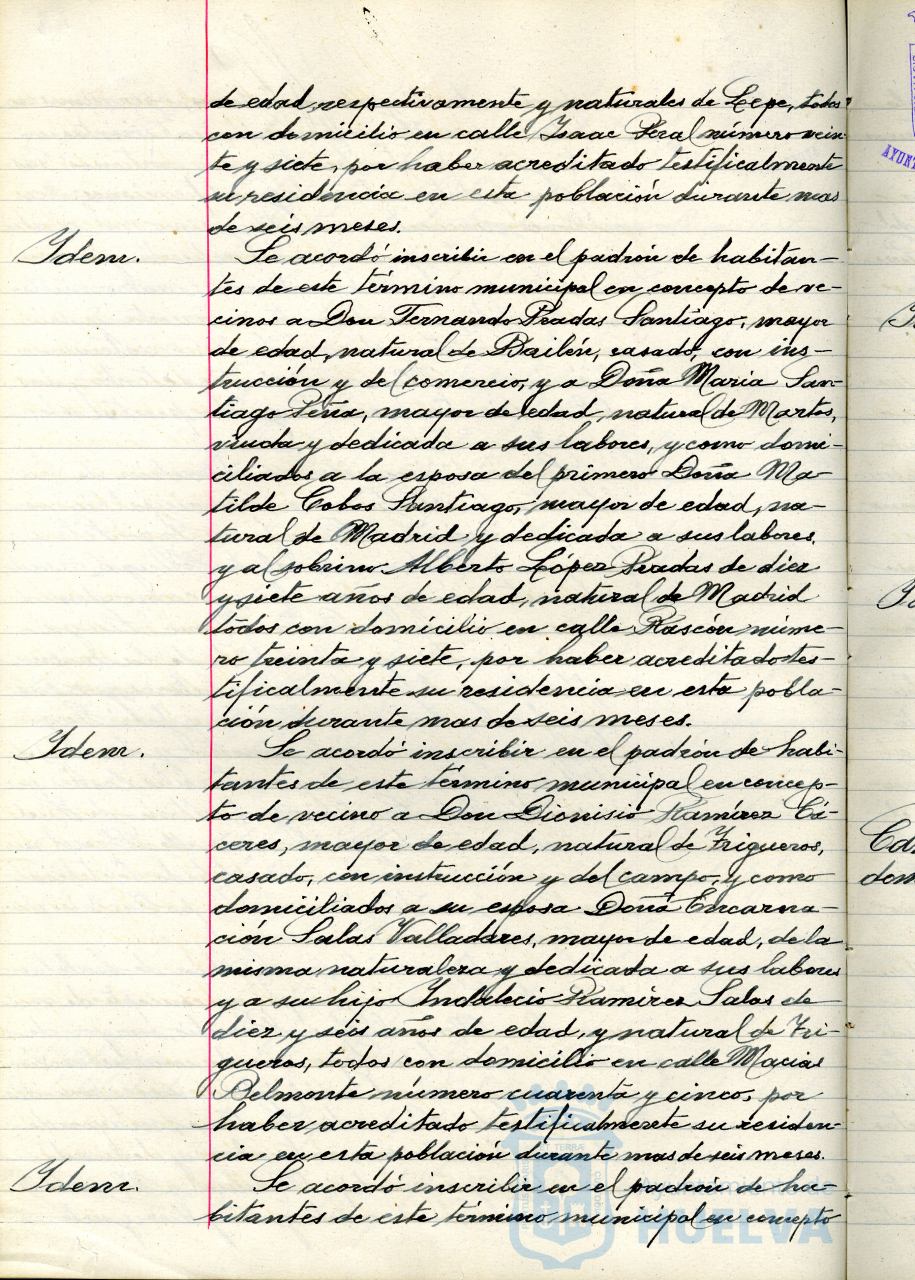 de edad, respectivamente y naturales de Lepe, todos
con domicilio en calle Isaac Peral número vein-
te y siete, por haber acreditado testificalmente
su residencia en esta población durante mas
de seis meses.
Idem.
Se acordó inscribir en el padrón de habitan-
tes de este término municipal en concepto de ve-
cinos a Don Fernando Peadas Santiago, mayor
de edad, natural de Bailén, casado, con ins-
trucción y del comercio, y a Doña Maria San-
tiago Peña, mayor de edad, natural de Martos,
viuda y dedicada a sus labores, y como domi-
ciliados a la esposa del primero Doña Ma-
tilde Cobos Santiago, mayor de edad, na-
tural de Madrid y dedicada a sus labores,
y al sobrino Alberto López Peadas de diez
y siete años de edad, natural de Madrid
todos con domicilio en calle Rascón núme-
ro treinta y siete, por haber acreditado tes-
tificalmente su residencia en esta pobla-
ción durante mas de seis meses.
Idem.
Se acordó inscribir en el padrón de habi-
tantes de este término municipal en concep-
to de vecino a Don Dionisio Ramírez Cá-
ceres, mayor de edad, natural de Trigueros,
casado, con instrucción y del campo, y como
domiciliados a su esposa Doña Encarna-
ción Salas Valladares, mayor de edad, de la
misma naturaleza y dedicada a sus labores
y a su hijo Indalecio Ramírez Salas de
diez y seis años de edad, y natural de Tri-
gueros, todos con domicilio en calle Macias
Belmonte número cuarenta y cinco, por
haber acreditado testificalmente su residen-
cia en esta población durante mas de seis meses.
Idem.
Se acordó inscribir en el padrón de ha-
bitantes de este término municipal en concepto
HUELVA